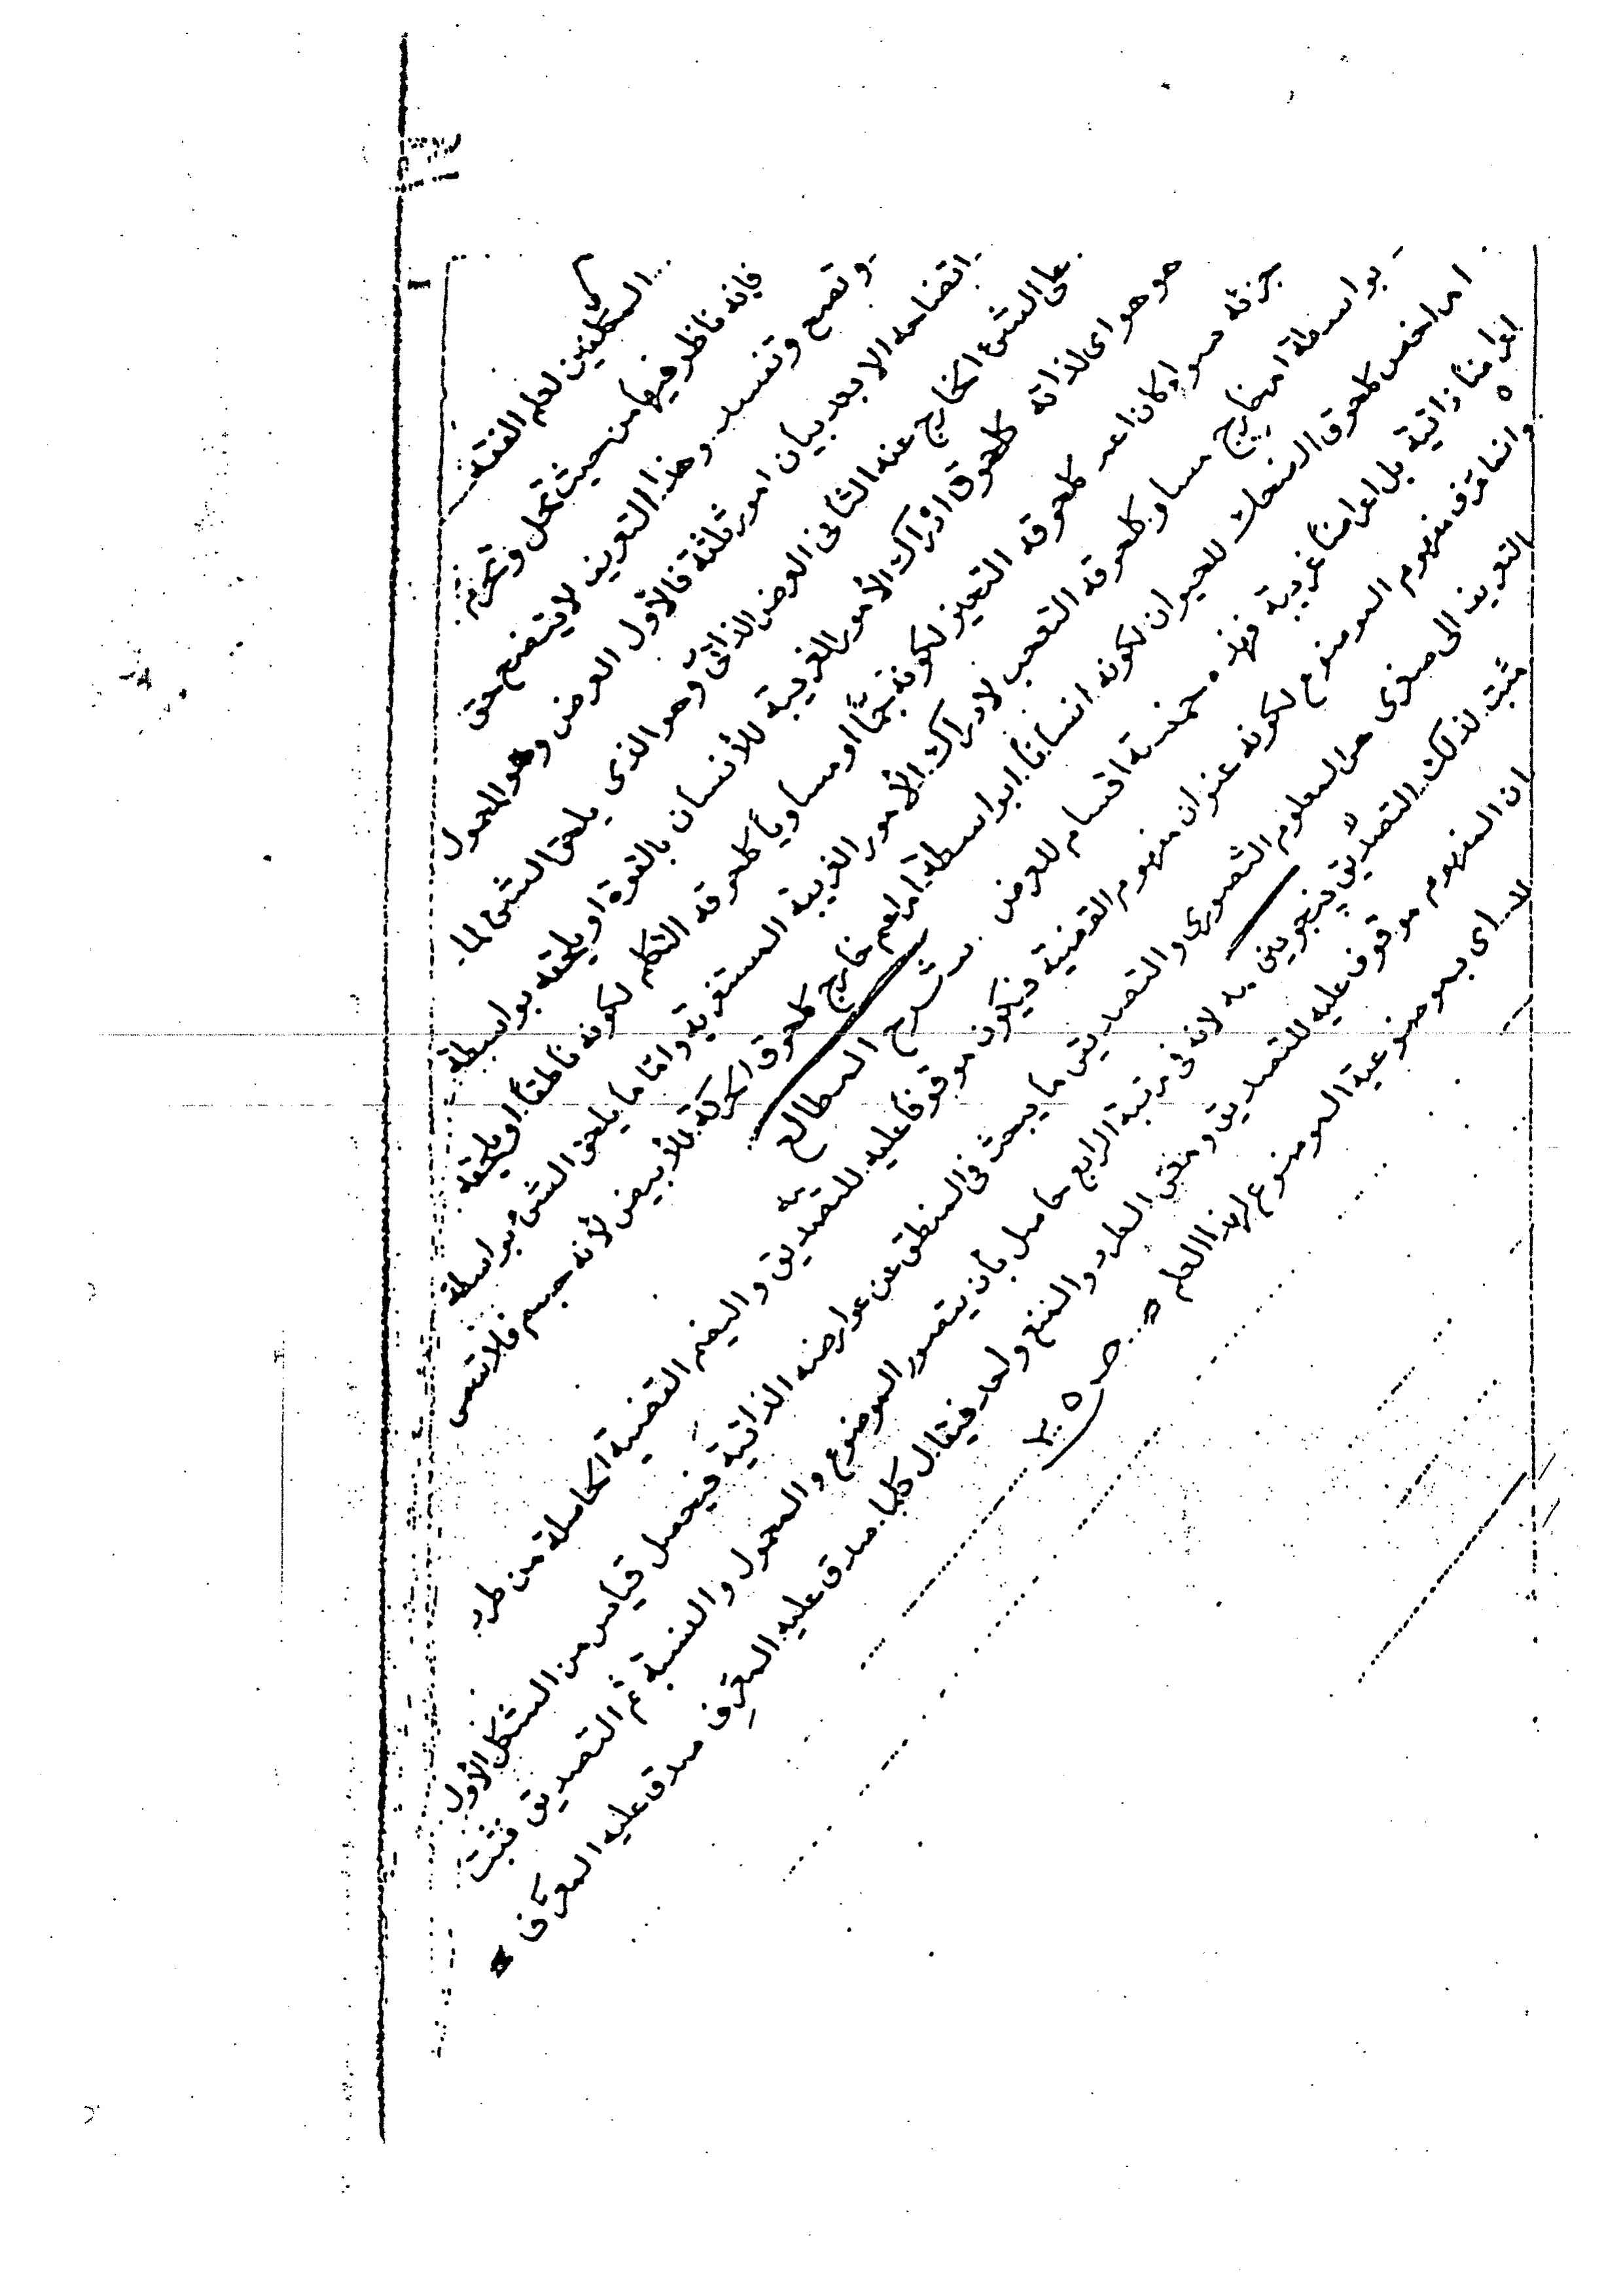 المكلفين لعلم الفقه
فإنه ناظر فيها من حيث تحل وتحرم
وتصح وتفسد وهذا التعريف لا يتضح حق
اتضاحه الا بعد بيان امور ثلثة فالأول العرض وهو المحمول
على الشئ الخارج عنه الثانى العرض الذاتى وهو الذى يلحق الشئ لما
هو هو اى لذاته كلحوق ادراك الأمور الغريبة للأنسان بالقوة او يلحقه بواسطة
جزئه سواء كان اعم كلحوقه التحيز لكونه جسما او مساويا كلحوقه التكلم لكونه ناطقا او يلحقه
بواسطة امر خارج مساو كلحوقه التعجب لادراك الأمور الغريبة المستغربة واما ما يلحق الشئ بواسطة
امر اخص كلحوق الضحك للحيوان لكونه انسانا او بواسطة امر اعم خارج كلحوق الحركة للأبيض لأنه جسم فلا تسمى
اعراضا ذاتية بل اعراضا غريبة فهذه خمسة اقسام للعرض شرح المطالع
وانما عرف مفهوم الموضوع لكونه عنوان مفهوم القضية فيكون موقوفا عليه للتصديق واليضم القضية الحاصلة من طرد
التعريف الى صغرى هى المعلوم التصورى والتصديقى ما يبحث فى المنطق عن عوارضه الذاتية فيحصل قياس من الشكل الأول
مثبت لذلك التصديق به لانه فى مرتبة الرابع حاصل بأن يتصور الموضوع والمحمول والنسبة ثم التصديق فثبت
ان المفهوم موقوف عليه للتصديق ومعنى الطرد والمنع واحد فيقال كلما صدق عليه المعرِف صدق عليه المعرَّف
اى بموضوعية الموضوع لهذا العلم